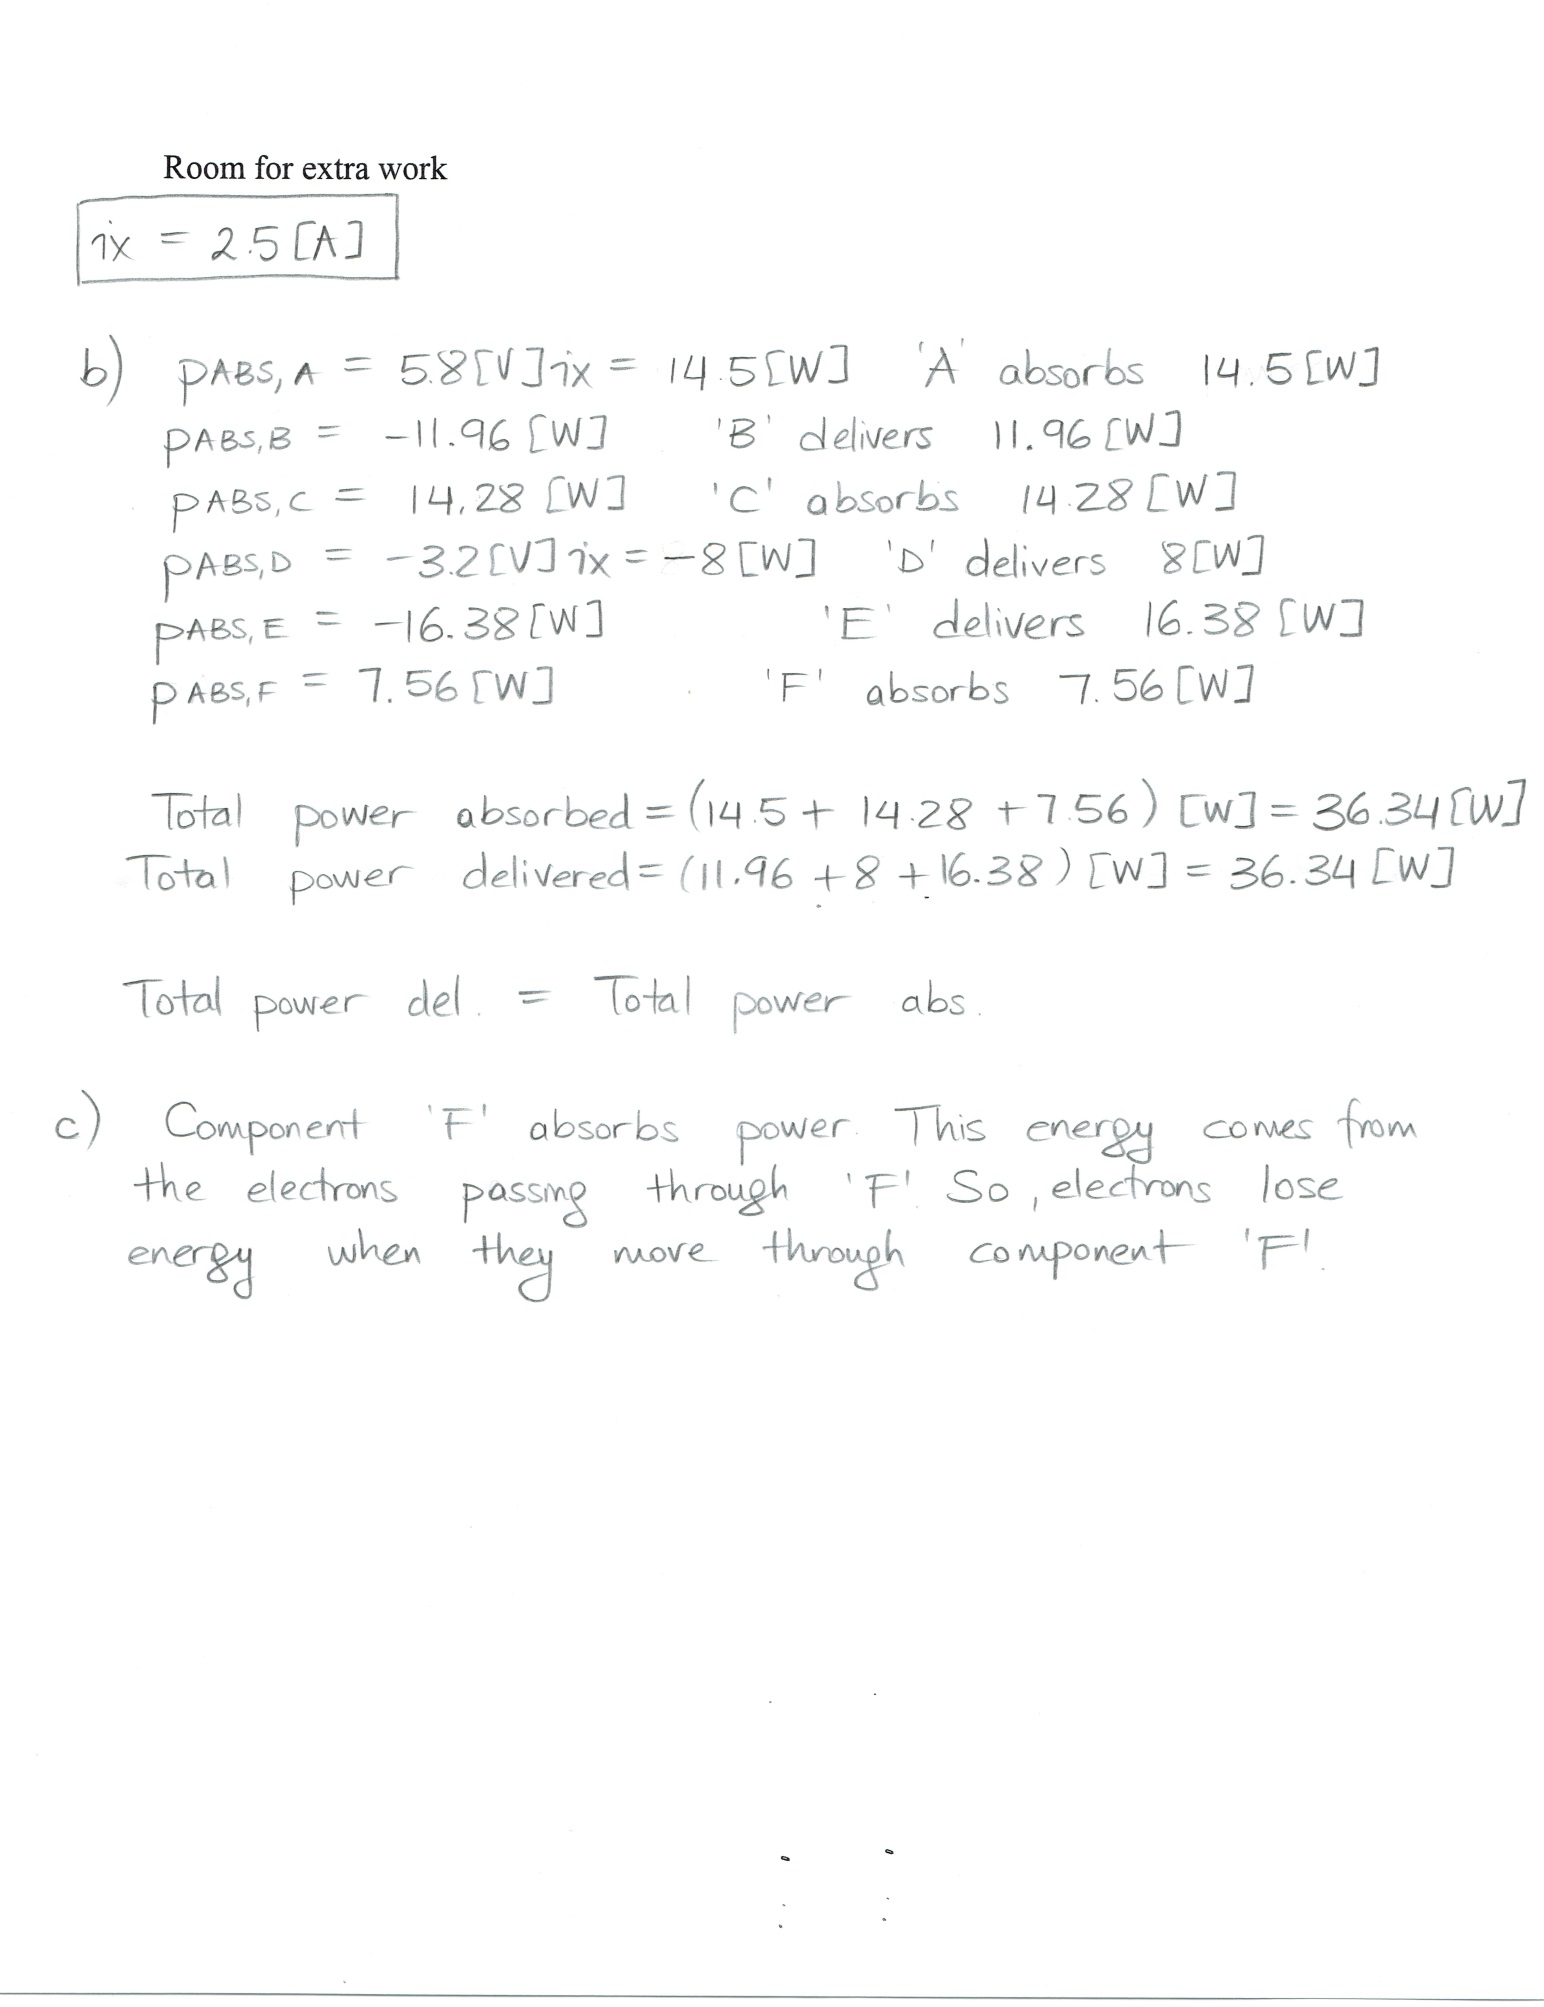 Room for extra work
ix = 2.5 [A]
b) PABS, A = 5.8[V] ix = 14.5[W] 'A' absorbs 14.5[W]
PABS, B = -11.96 [W] 'B' delivers 11.96 [W]
PABS, C = 14.28 [W] 'C' absorbs 14.28 [W]
PABS, D = -3.2[V] ix = -8[W] 'D' delivers 8[W]
PABS, E = -16.38[W] 'E' delivers 16.38 [W]
PABS, F = 7.56[W] 'F' absorbs 7.56[W]
Total power absorbed = (14.5 + 14.28 + 7.56) [W] = 36.34[W]
Total power delivered = (11.96 + 8 + 16.38) [W] = 36.34 [W]
Total power del. = Total power abs.
c) Component 'F' absorbs power. This energy comes from
the electrons passing through 'F'. So, electrons lose
energy when they move through component 'F'.